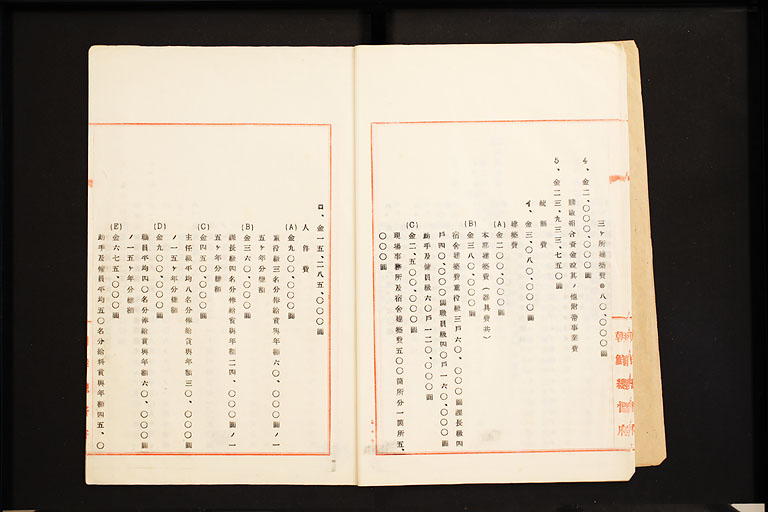 三ヶ所建築費@八〇、〇〇〇圓
4、金二、〇〇〇、〇〇〇圓
購販組合資金設其ノ他附帶事業費
5、金二三、九三三、七五〇圓
統籌費
イ、金三、〇八〇、〇〇〇圓
建築費
(A)金二〇〇、〇〇〇圓
本部建築費(器具費共)
(B)金三八〇、〇〇〇圓
宿舎建築費重役級三戸六〇、〇〇〇圓課長級四
戸四〇、〇〇〇圓職員級四〇戸一六〇、〇〇〇圓
助手及傭員級六〇戸一二〇、〇〇〇圓
(C)金二、五〇〇、〇〇〇圓
現場事務所及宿舎建築費五〇〇箇所分一箇所五、
〇〇〇圓
朝鮮總督府
ロ、金一五、二八五、〇〇〇圓
人件費
(A)金九〇〇、〇〇〇圓
重役級三名分俸給賞與年額六〇、〇〇〇圓ノ一
五ヶ年分總額
(B)金三六〇、〇〇〇圓
課長級四名分俸給賞與年額二四、〇〇〇圓ノ一
五ヶ年分總額
(C)金四五〇、〇〇〇圓
主任級平均八名分俸給賞與年額三〇、〇〇〇圓
ノ一五ヶ年分總額
(D)金九〇〇、〇〇〇圓
職員平均四〇名分俸給賞與年額六〇、〇〇〇圓
ノ一五ヶ年分總額
(E)金六七五、〇〇〇圓
助手及傭員平均五〇名分給料賞與年額四五、〇